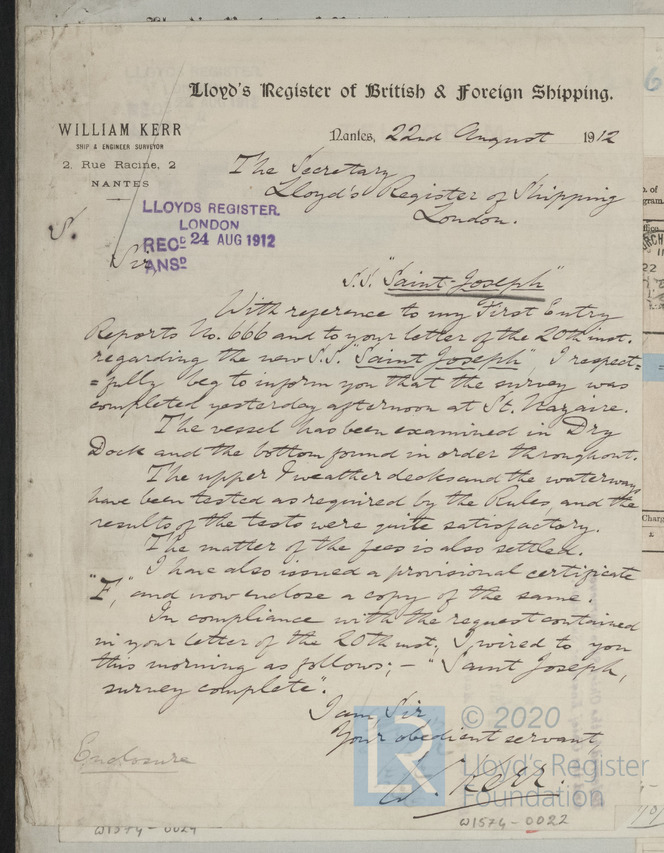 Lloyd's Register of British & Foreign Shipping.
WILLIAM KERR
SHIP & ENGINEER SURVEYOR
2, Rue Racine, 2
NANTES
Nantes, 22nd August 1912
The Secretary
Lloyd's Register of Shipping
London.
LLOYDS REGISTER.
LONDON
RECD 24 AUG 1912
ANSD
Sir,
S.S. "Saint-Joseph"
With reference to my First Entry
Reports No. 666 and to your letter of the 20th inst.
regarding the new S.S. "Saint Joseph", I respect=
=fully beg to inform you that the survey was
completed yesterday afternoon at St. Nazaire.
The vessel has been examined in Dry
Dock and the bottom found in order throughout.
The upper & weather decks and the waterways
have been tested as required by the Rules, and the
results of the tests were quite satisfactory.
The matter of the fees is also settled.
I have also issued a provisional certificate
"F," and now enclose a copy of the same.
In compliance with the request contained
in your letter of the 20th inst; I wired to you
this morning as follows; - "Saint Joseph,
survey complete".
I am, Sir,
Your obedient servant,
W. Kerr.
Enclosure
LR
© 2020
Lloyd's Register
Foundation
W1574-0024
W1574-0022